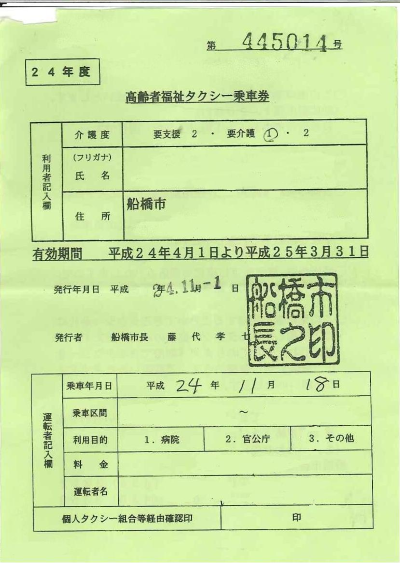 第 445014 号
24年度
高齢者福祉タクシー乗車券
利用者記入欄
介護度 要支援 2 ・ 要介護 ① ・ 2
(フリガナ)
氏名
住所 船橋市
有効期間 平成24年4月1日より平成25年3月31日
発行年月日 平成 24.年11月-1日
発行者 船橋市長 藤代孝七
船橋市長之印
運転者記入欄
乗車年月日 平成 24 年 11 月 18 日
乗車区間 ～
利用目的 1.病院 2.官公庁 3.その他
料金
運転者名
個人タクシー組合等経由確認印 印